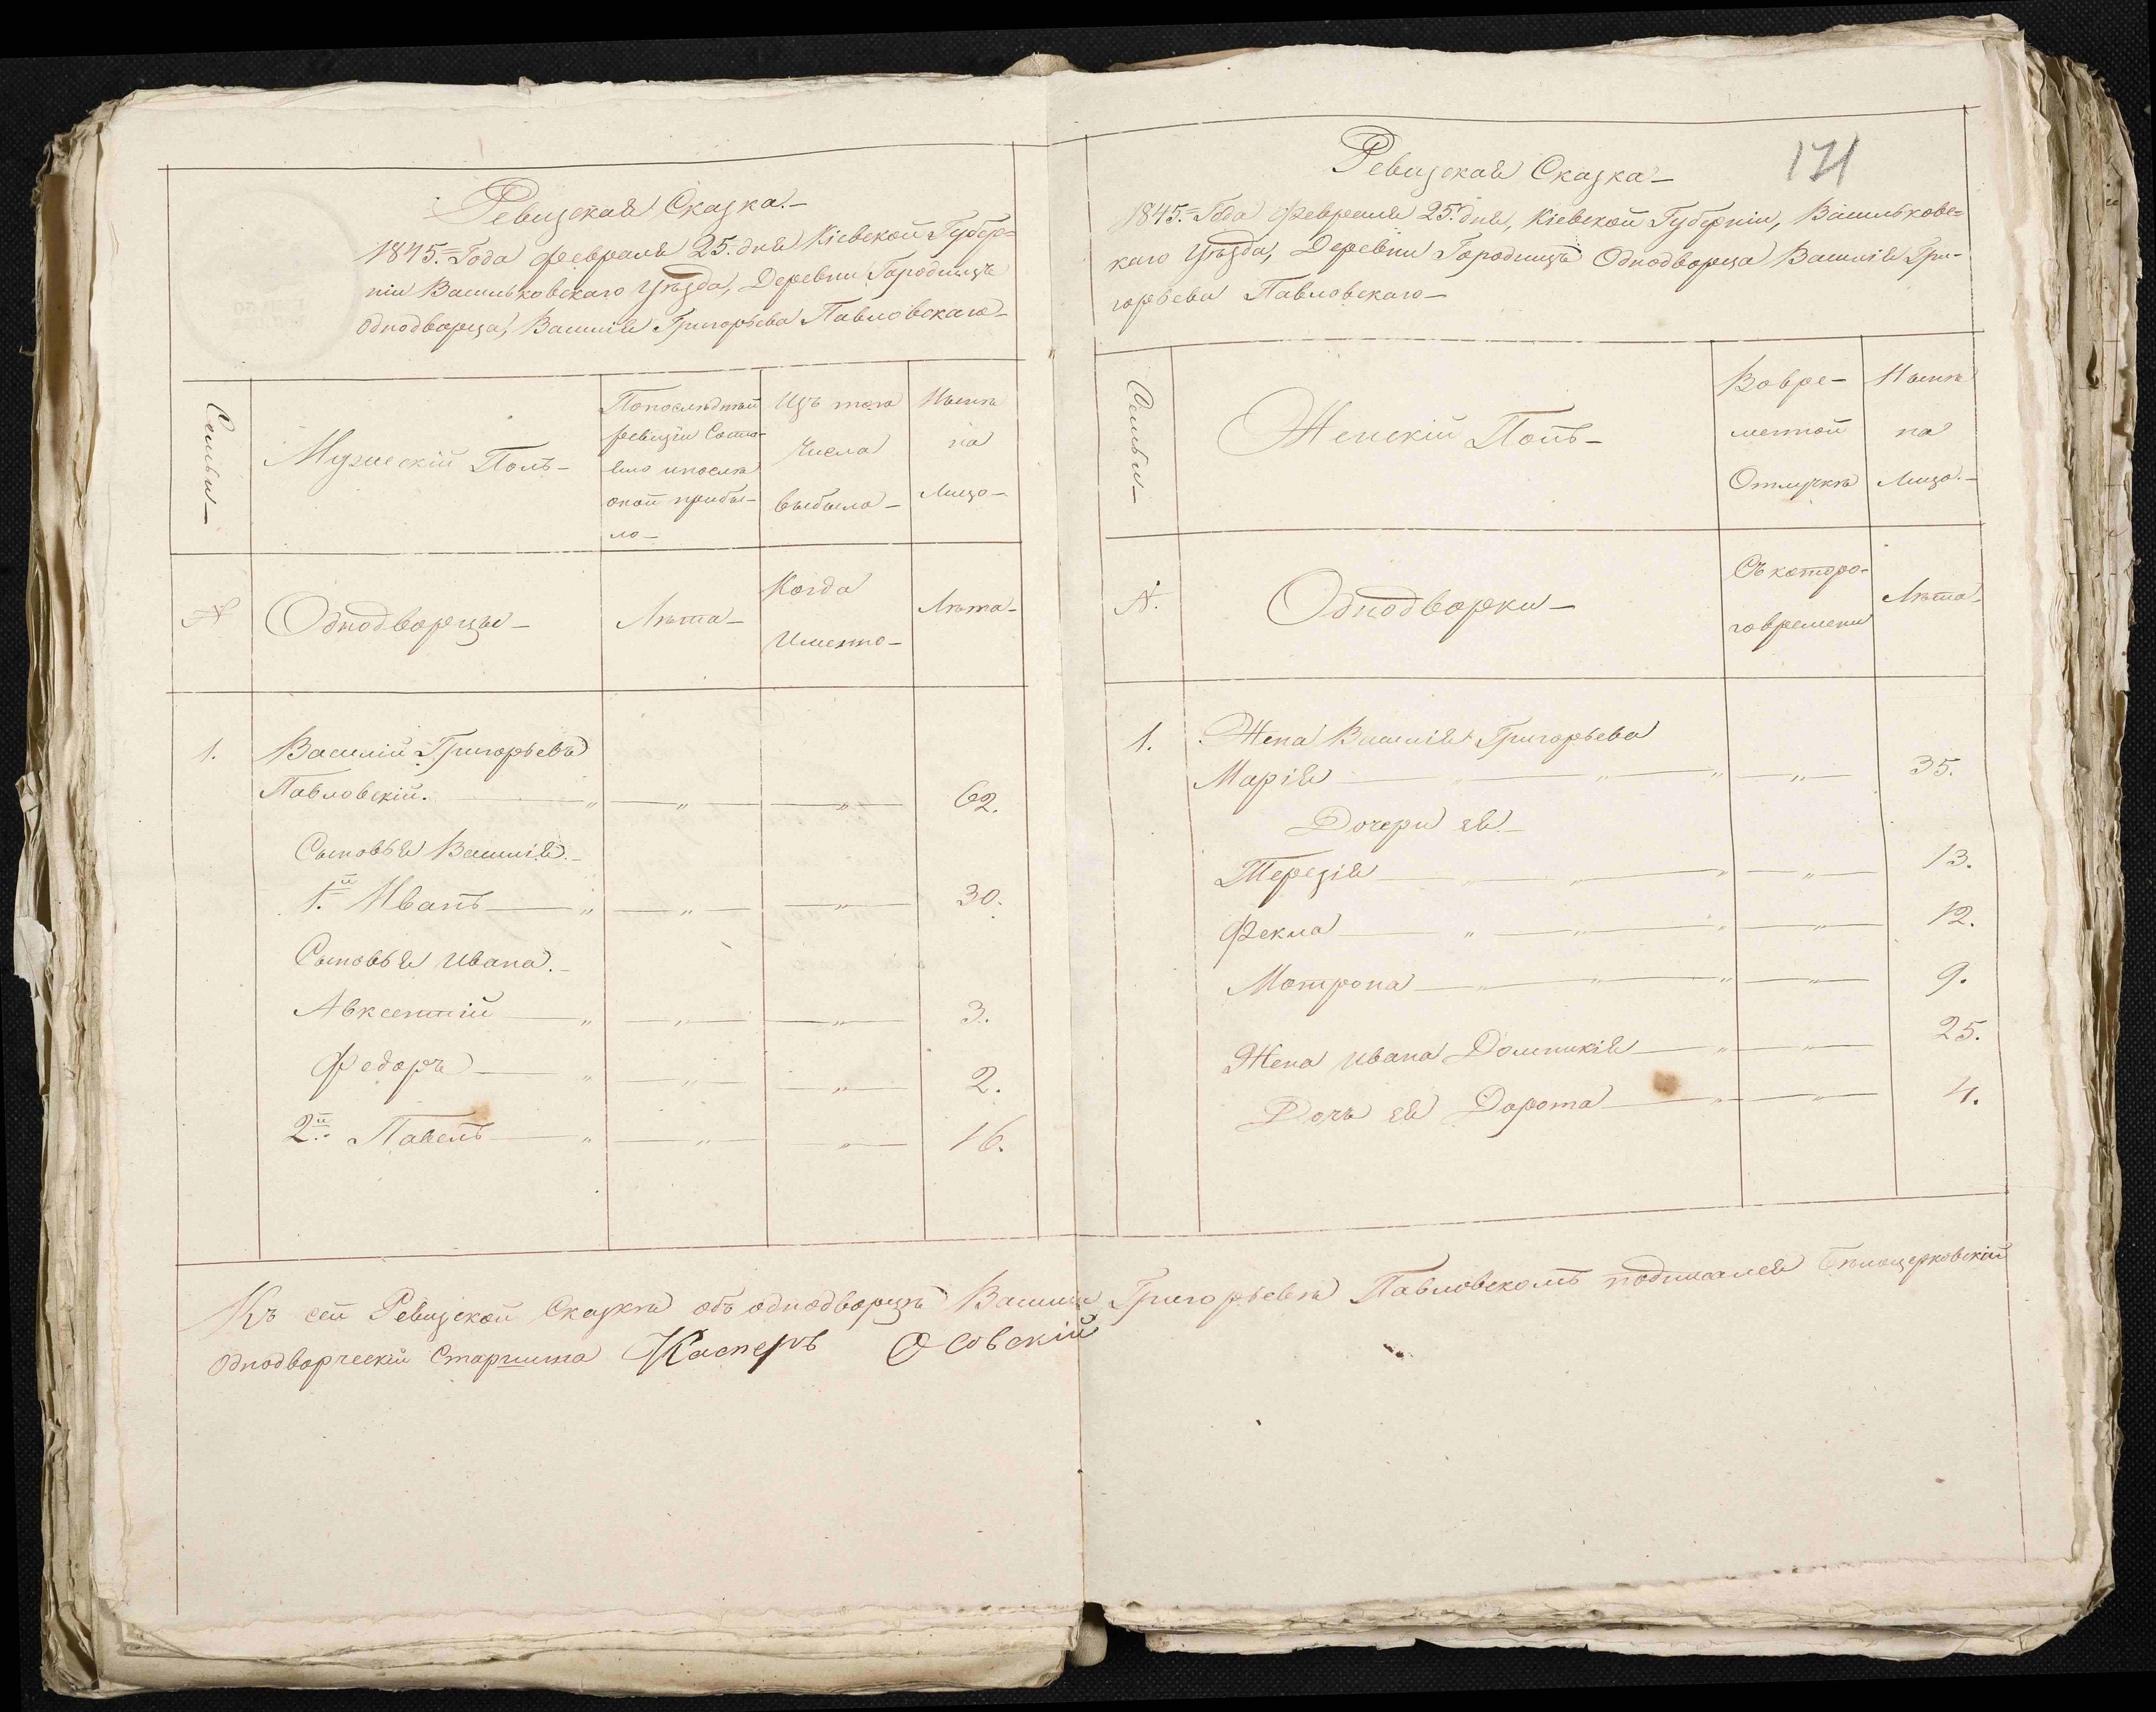 Ревизская Сказка.—
1845.= Года Февраля 25. дня Кіевской Губер=
ніи Васильковскаго Уѣзда, Деревни Городищъ
однодворца, Василія Григорьева Павловскаго—
Семьи—
Мужескій Полъ—
Попослѣдней
ревизіи Состо-
яло ипослѣ
оной прибы-
ло—
Изъ того
Числа
выбыло—
Нынѣ
на
Лицо—
№
Однодворцы—
Лѣта—
Когда
Именно—
Лѣта—
1. Василій Григорьевъ
Павловскій. 62.
Сыновья Василія.—
1.й Иванъ 30.
Сыновья Ивана.—
Авксентій 3.
Федоръ 2.
2.й Павелъ 16.
171
Ревизская Сказка—
1845.= Года Февраля 25. дня, Кіевской Губерніи, Васильковс=
каго Уѣзда, Деревни Городищъ Однодворца Василія Гри-
горьева Павловскаго—
Семьи—
Женскій Полъ—
Вовре-
менной
Отлучкѣ
Нынѣ
на
Лицо.—
№.
Однодворки—
Съ которо-
говремени
Лѣта—
1. Жена Василія Григорьева
Марія 35.
Дочери ея—
Терезія 13.
Фекла 12.
Мотрона 9.
Жена Ивана Домникія 25.
Дочь ея Дорота 4.
Къ сей Ревизской Сказкѣ объ однодворцѣ Василіи Григорьевѣ Павловскомъ подписался Бѣлоцерковскій
Однодворческій Старшина Касперъ Осовскій